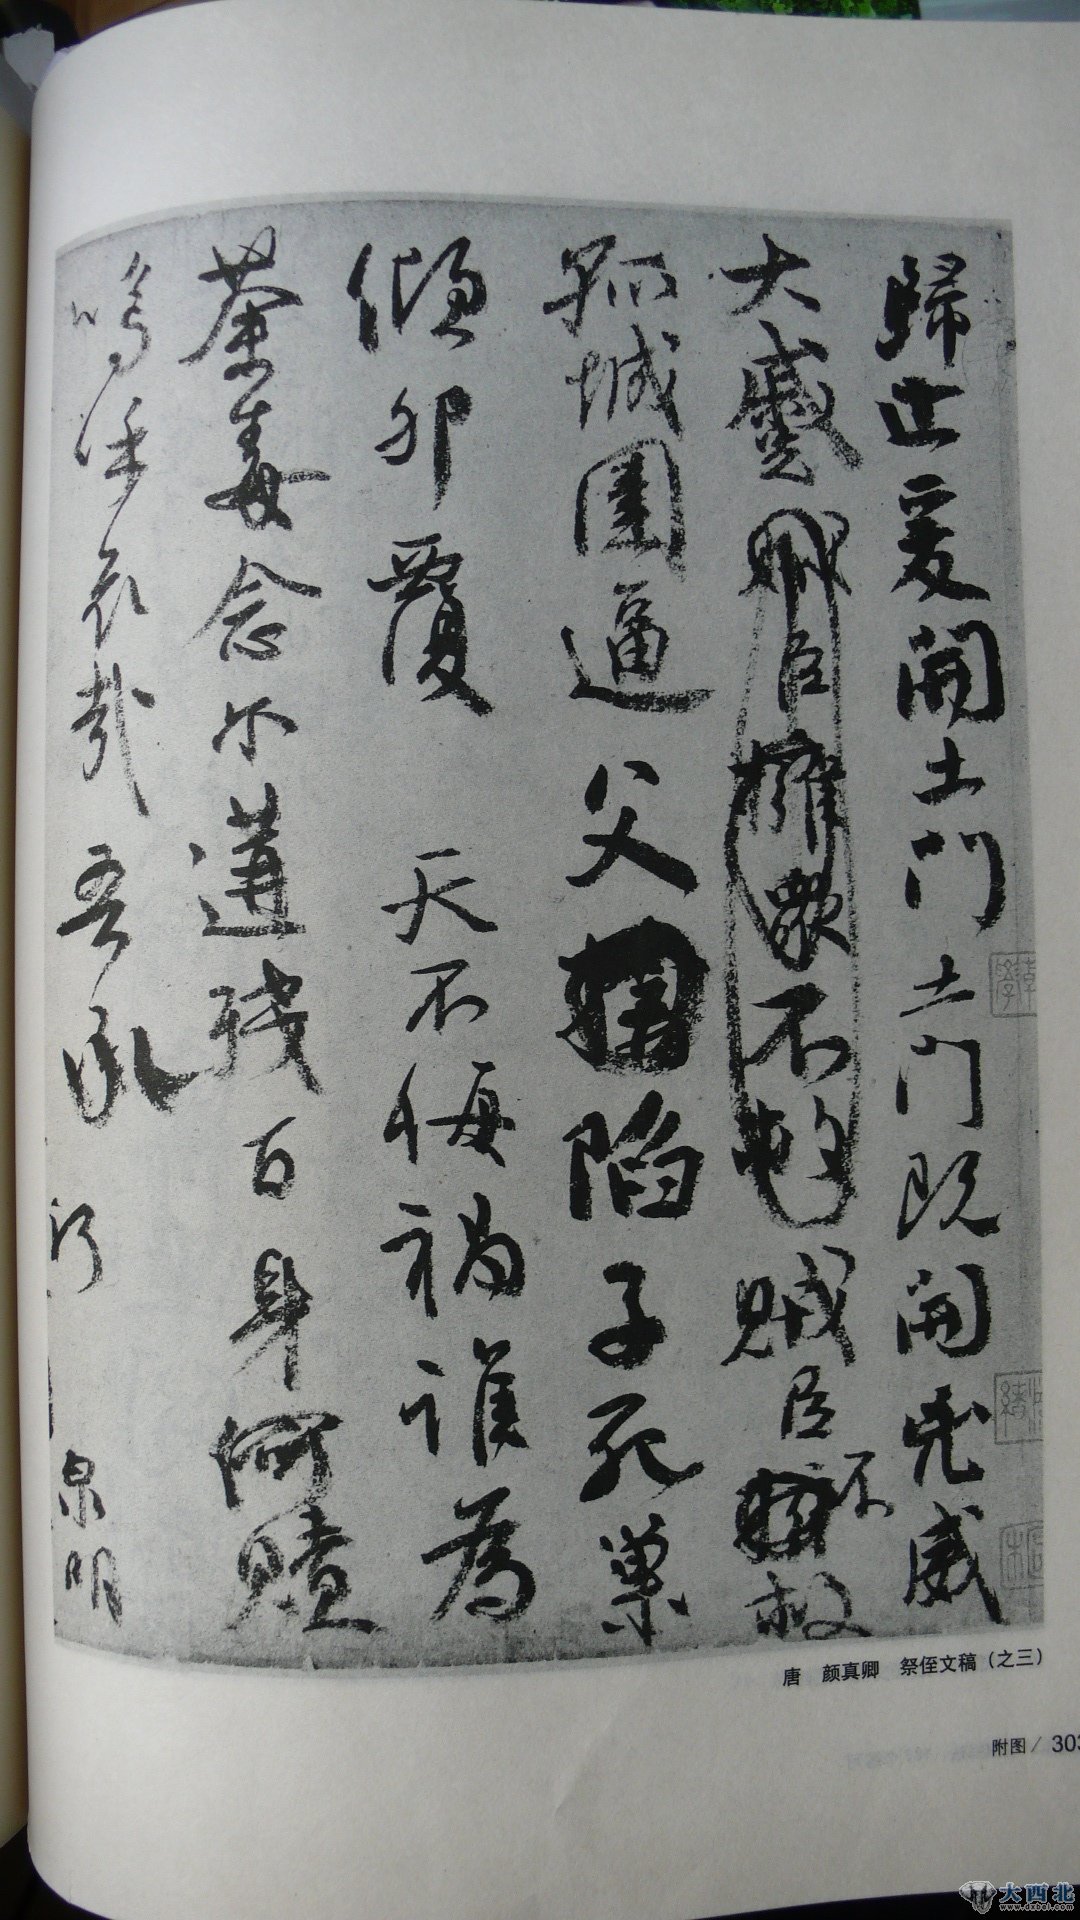 歸止爰開土門土門既開凶威
大蹙賊臣擁衆不救賊臣不救
孤城圍逼父陷子死巢
傾卵覆 天不悔禍誰為
荼毒念爾遘殘百身何贖
嗚乎哀哉吾承
泉明
唐 颜真卿 祭侄文稿（之三）
附图/303
大西北
www.dxbei.com